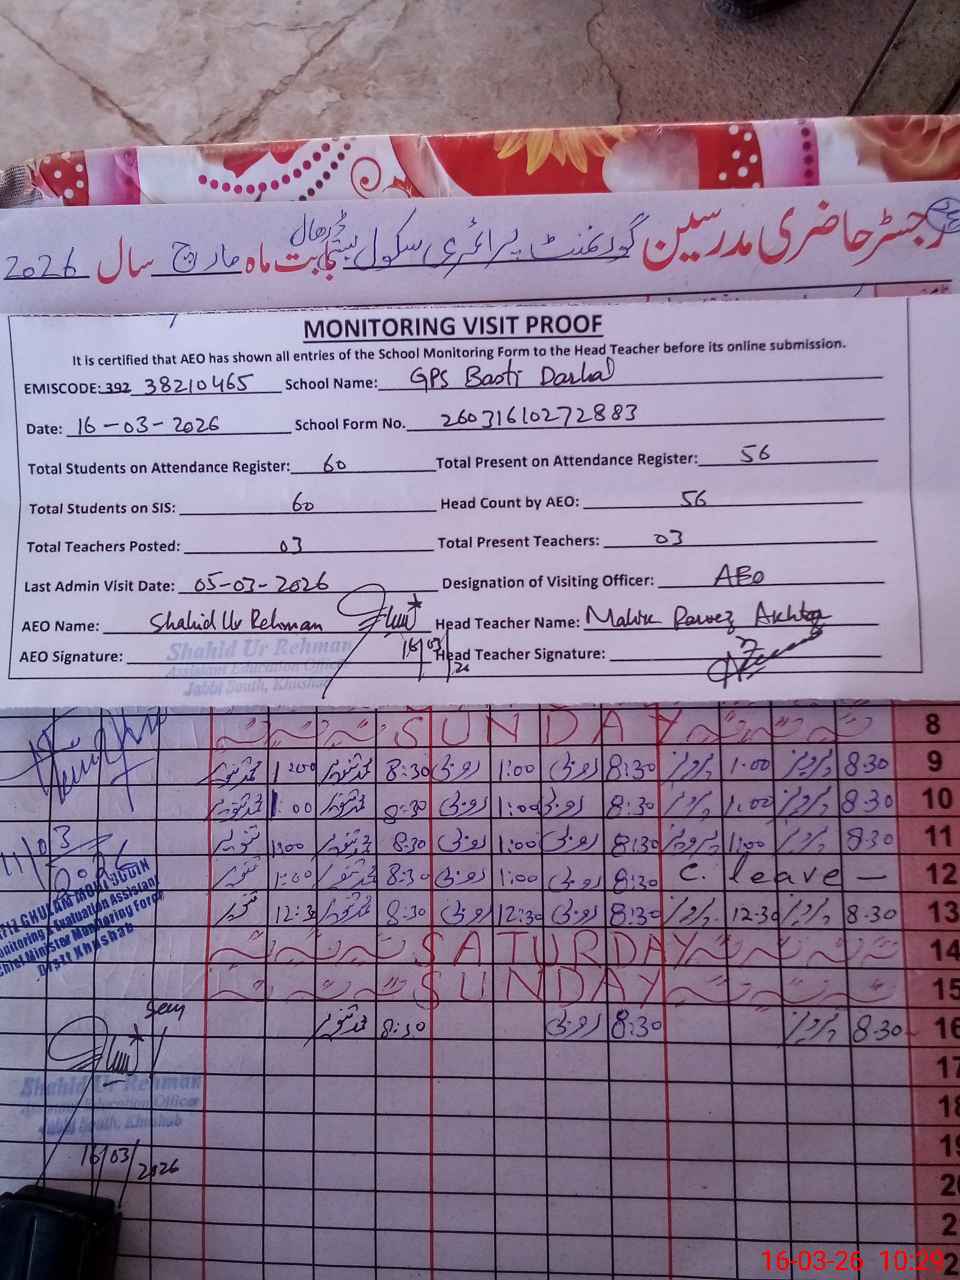 رجسٹر حاضری مدرسین گورنمنٹ پرائمری سکول بستی ڈرھال بابت ماہ مارچ سال 2026
MONITORING VISIT PROOF
It is certified that AEO has shown all entries of the School Monitoring Form to the Head Teacher before its online submission.
EMISCODE: 392 38210465 School Name: GPS Basti Darhal
Date: 16-03-2026 School Form No. 26031610272883
Total Students on Attendance Register: 60 Total Present on Attendance Register: 56
Total Students on SIS: 60 Head Count by AEO: 56
Total Teachers Posted: 03 Total Present Teachers: 03
Last Admin Visit Date: 05-03-2026 Designation of Visiting Officer: AEO
AEO Name: Shahid Ur Rehman Head Teacher Name: Malik Parvez Akhtar
AEO Signature: 16/03/26 Head Teacher Signature:
Shahid Ur Rehman
Assistant Education Officer
Jabbi South, Khushab
SUNDAY 8
1:00 8:30 1:00 8:30 1.00 8.30 9
1:00 8:30 1:00 8:30 1.00 8.30 10
1:00 8:30 1:00 8:30 1:00 8.30 11
1:00 8:30 1:00 8:30 C. leave - 12
12:30 8:30 12:30 8:30 12.30 8.30 13
SATURDAY 14
SUNDAY 15
8:30 8:30 8.30 16
17
18
19
11/03/2026
GHULAM MOHI UDDIN
Monitoring & Evaluation Assistant
Chief Minister Monitoring Force
Distt Khushab
Seen
Shahid Ur Rehman
Assistant Education Officer
Jabbi South, Khushab
16/03/2026
16-03-26 10:29